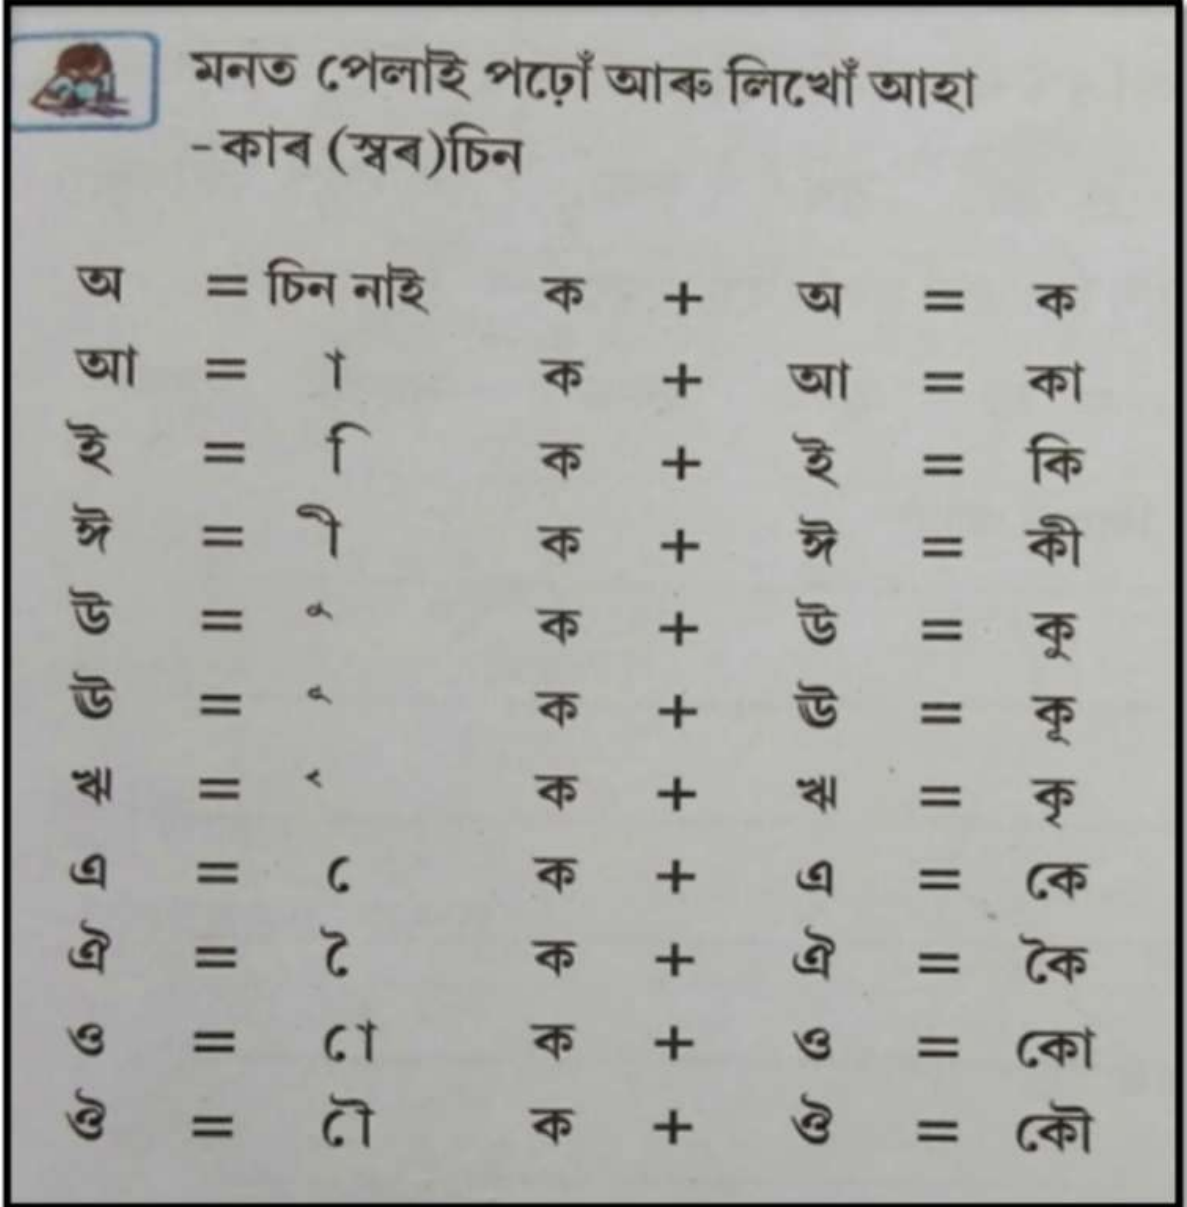 মনত পেলাই পঢ়োঁ আৰু লিখোঁ আহা
-কাৰ (স্বৰ)চিন
অ = চিন নাই ক + অ = ক
আ = া ক + আ = কা
ই = ি ক + ই = কি
ঈ = ী ক + ঈ = কী
উ = ু ক + উ = কু
ঊ = ূ ক + ঊ = কূ
ঋ = ৃ ক + ঋ = কৃ
এ = ে ক + এ = কে
ঐ = ৈ ক + ঐ = কৈ
ও = ো ক + ও = কো
ঔ = ৌ ক + ঔ = কৌ